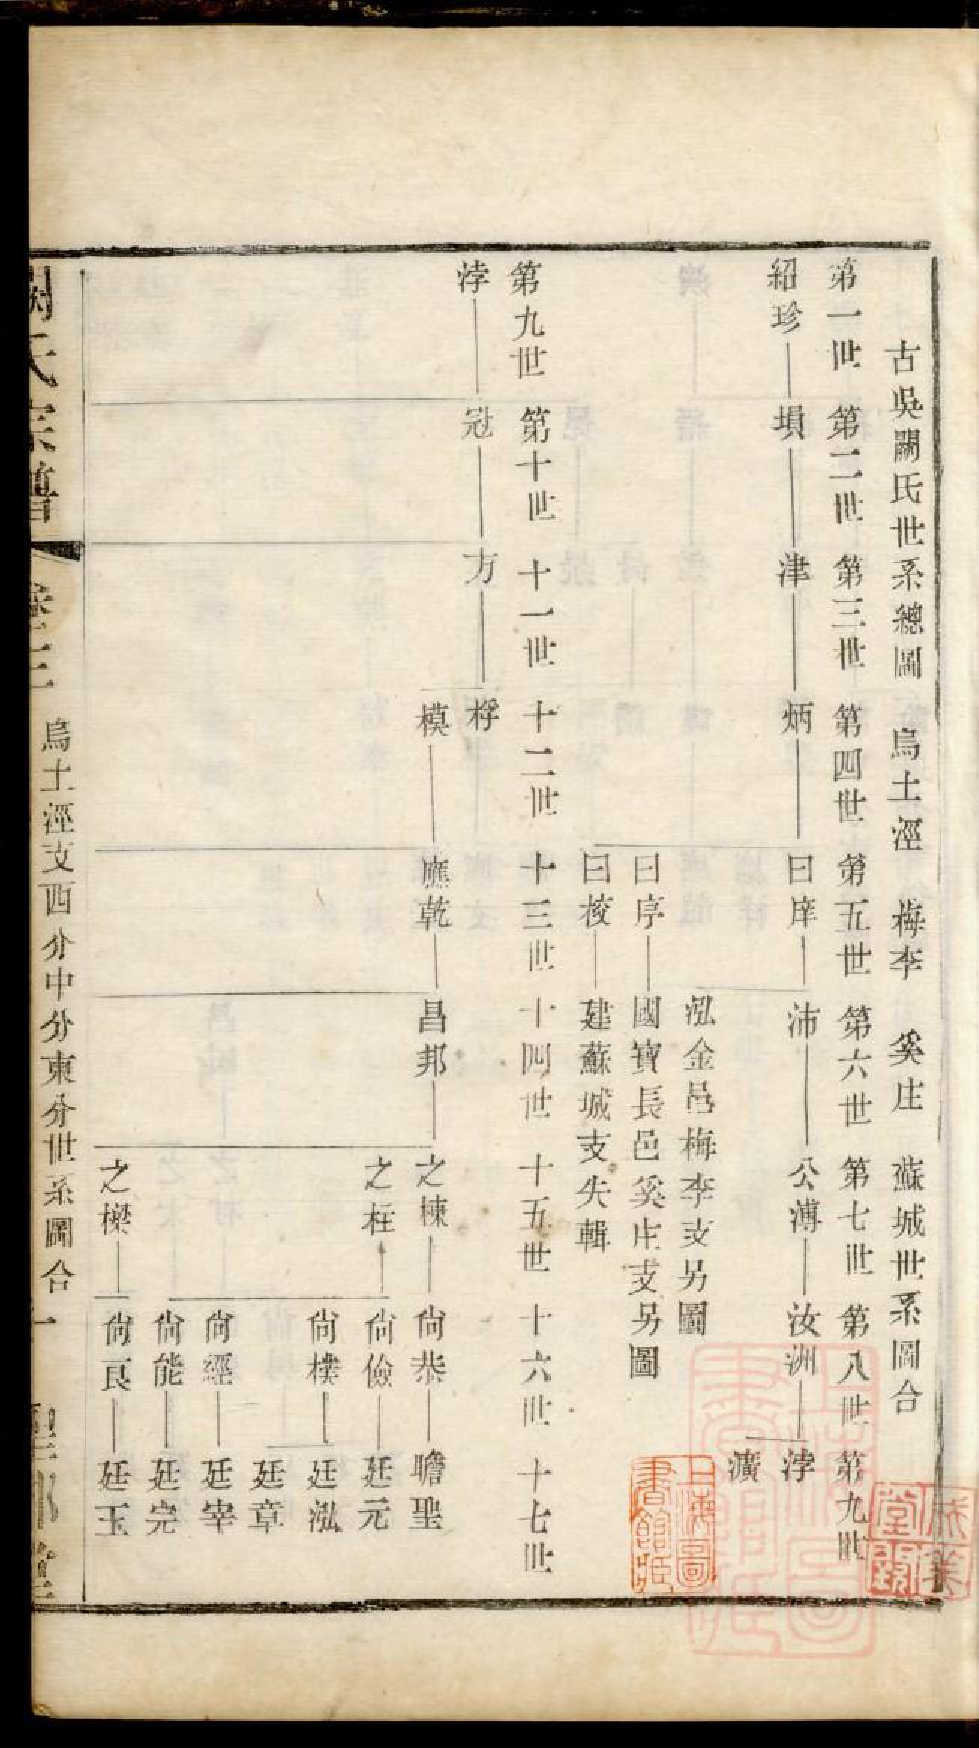 古吳闕氏世系總圖 烏土涇 梅李 奚庄 蘇城世系圖合
第一世 第二世 第三世 第四世 第五世 第六世 第七世 第八世 第九世
紹珍 塤 津 炳 曰庠 沛 公溥 汝洲 浡
瀇
泓金邑梅李支另圖
曰序 國寶長邑奚庄支另圖
曰校 建蘇城支失輯
第九世 第十世 十一世 十二世 十三世 十四世 十五世 十六世 十七世
浡 冠 方 桴
模 應乾 昌邦 之棟 尙恭 瞻聖
之柱 尙儉 廷元
尙樸 廷泓
廷章
尙經 廷宰
尙能 廷完
之樑 尙良 廷玉
闕氏宗譜 卷三 烏土涇支西分中分東分世系圖合 一
上海圖書館藏